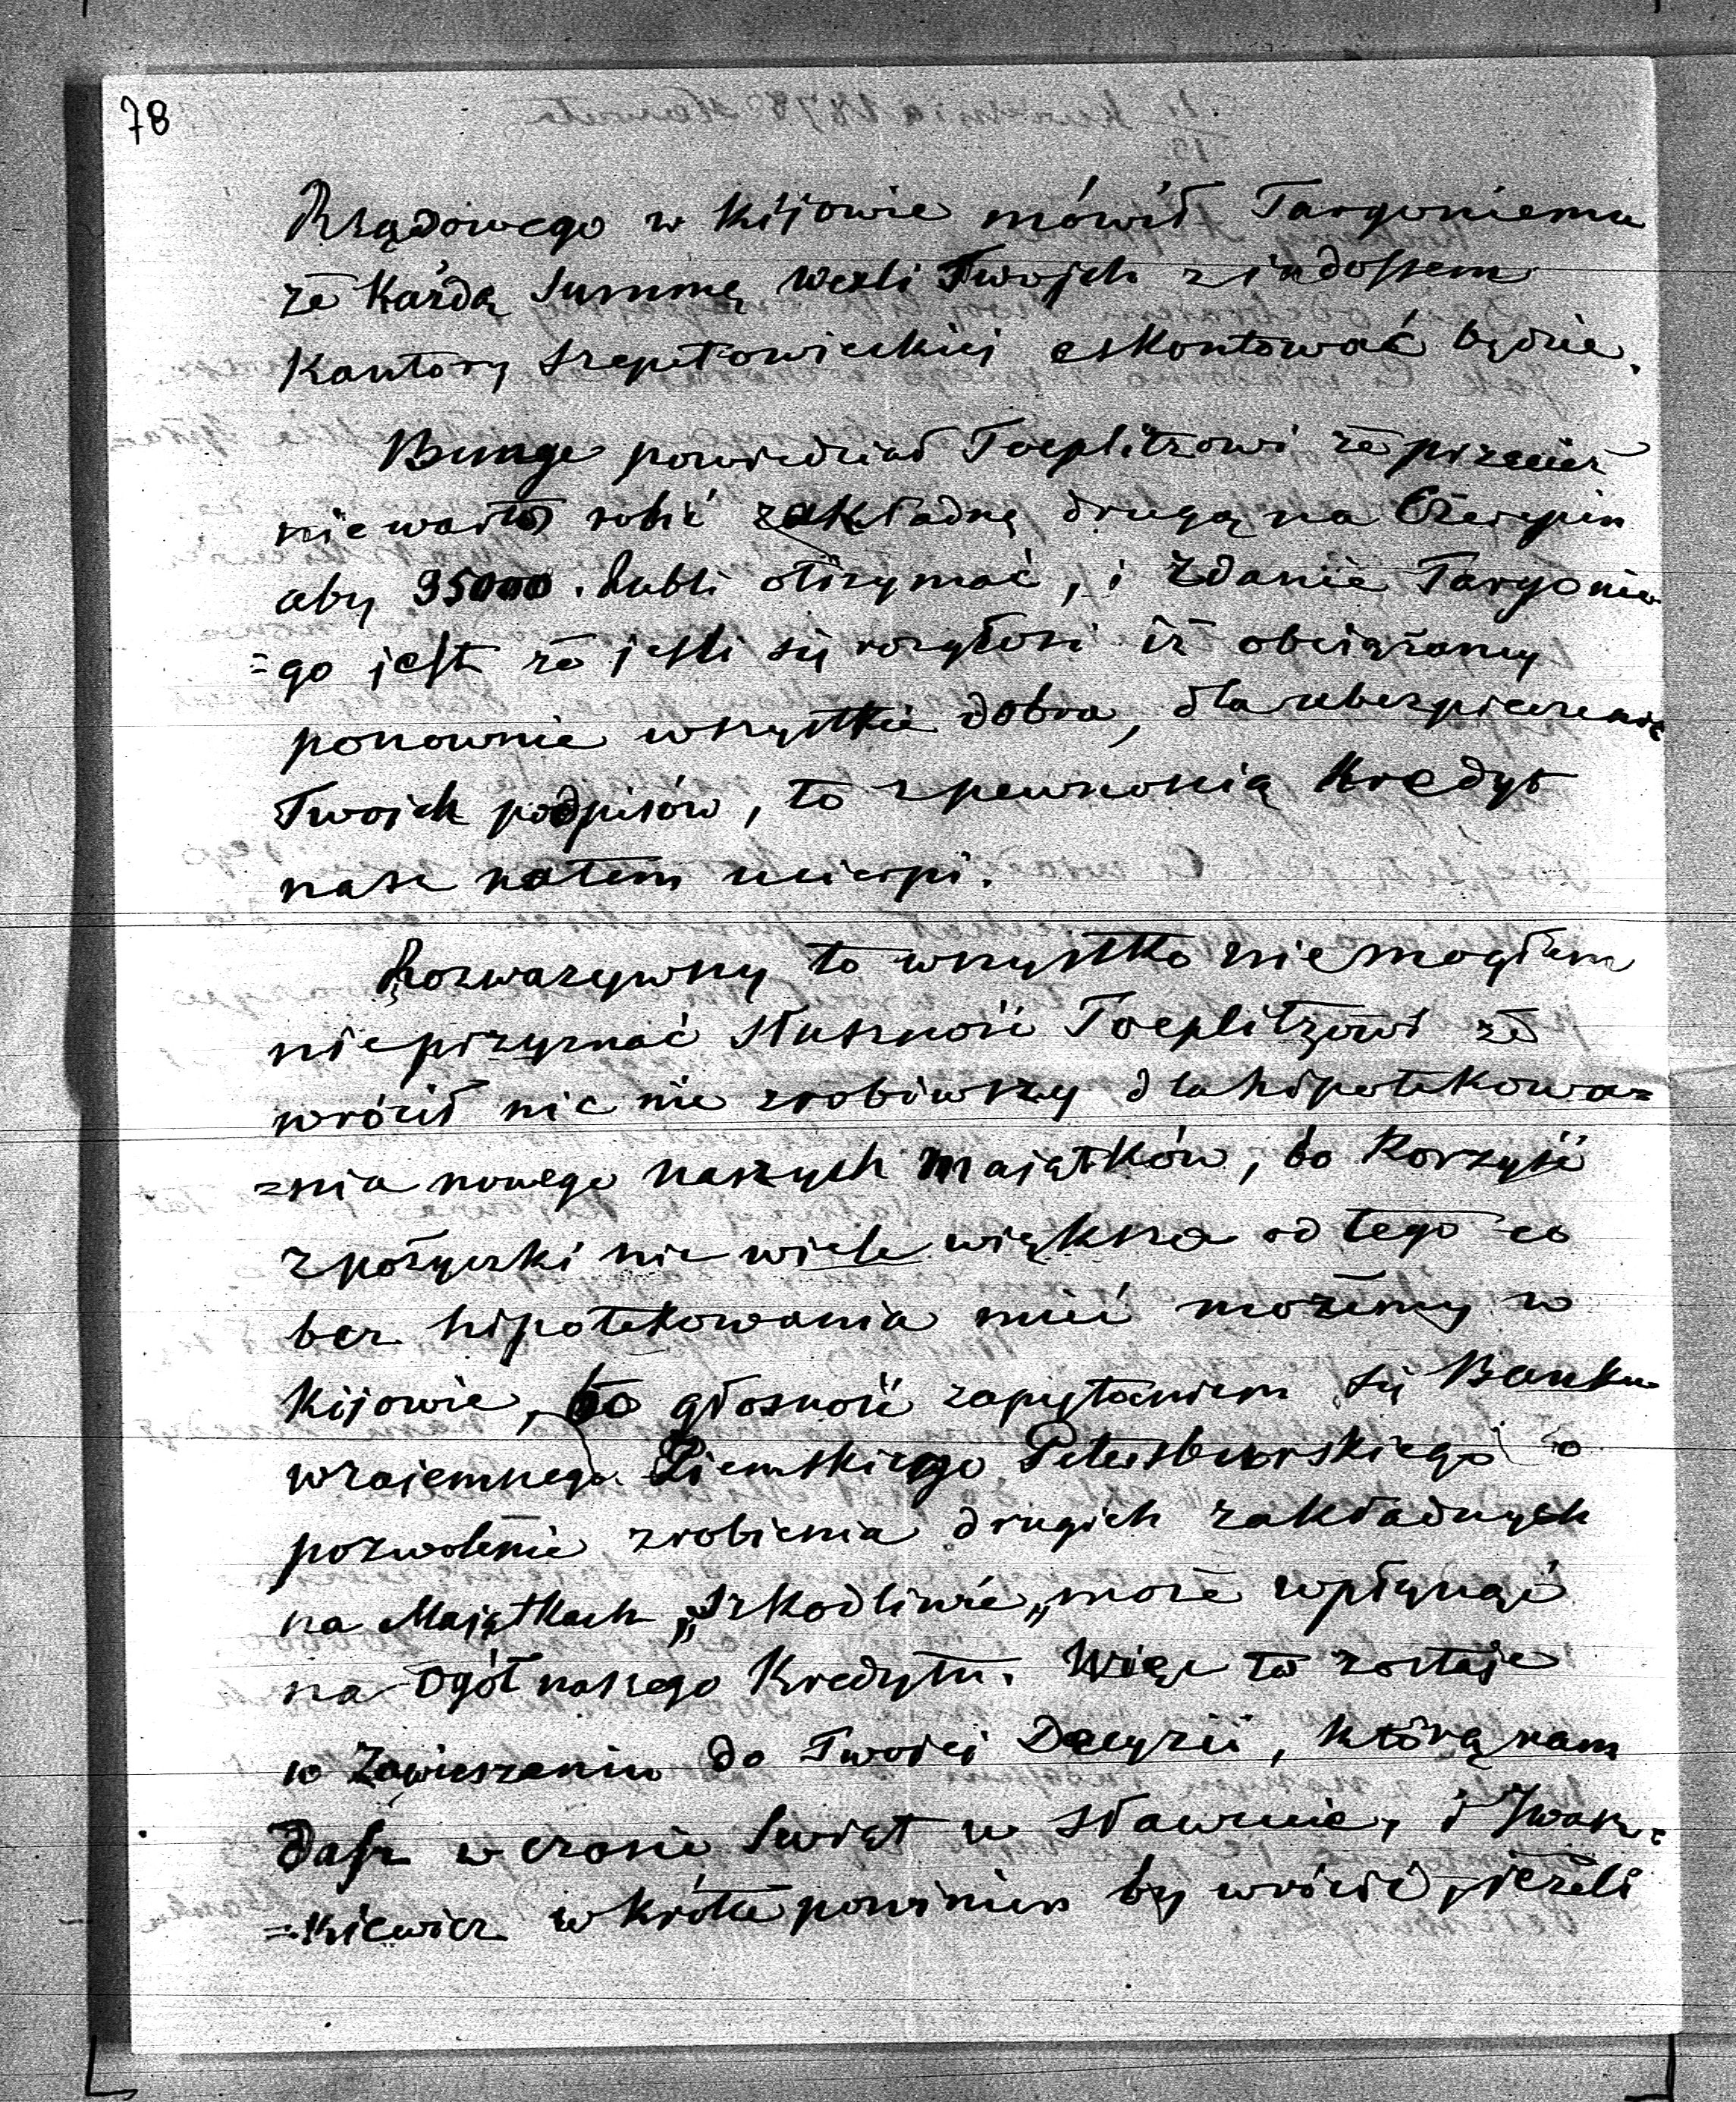 78
Rządowego w Kijowie mówił Targoniemu
że Każdą Summę weksli Twojch z indossem
Kantory Szepetowieckiej eskontować będzie.
Bunge powiedział Toeplitzowi że przecież
nie warto robić zakładną drugą na Czerepin
aby 95000 . Rubli otrzymać, i Zdanie Targonie
=go jest że jeśli się rozgłosi iż obciążamy
ponownie wszystkie dobra, dla ubezpieczenia
Twoich podpisów, to z pewnością Kredyt
nasz natem ucierpi.
Rozważywszy to wszystko nie mogłem
nieprzyznać słuszność Toeplitzowi że
wrócił nic nie zrobiwszy dla hipotekowa=
=nia nowego naszych Majątków, bo Korzyść
z pożyczki nie wiele większa od tego co
bez hipotekowania mieć możemy w
Kijowie, bo głosność zapytaniem się Banku
wzajemnego Ziemskiego Petersburskiego o
pozwolenie zrobienia drugich zakładnych
na Majątkach „szkodliwie„ może wpłynąć
na Ogół naszego Kredytu. Więc to zostaje
w Zawieszeniu do Twojej Decyzii, którą nam
Dasz w czasie Świąt w Sławucie, i Iwasz=
=kiewicz w krótce powinien by wrócić, jeżeli